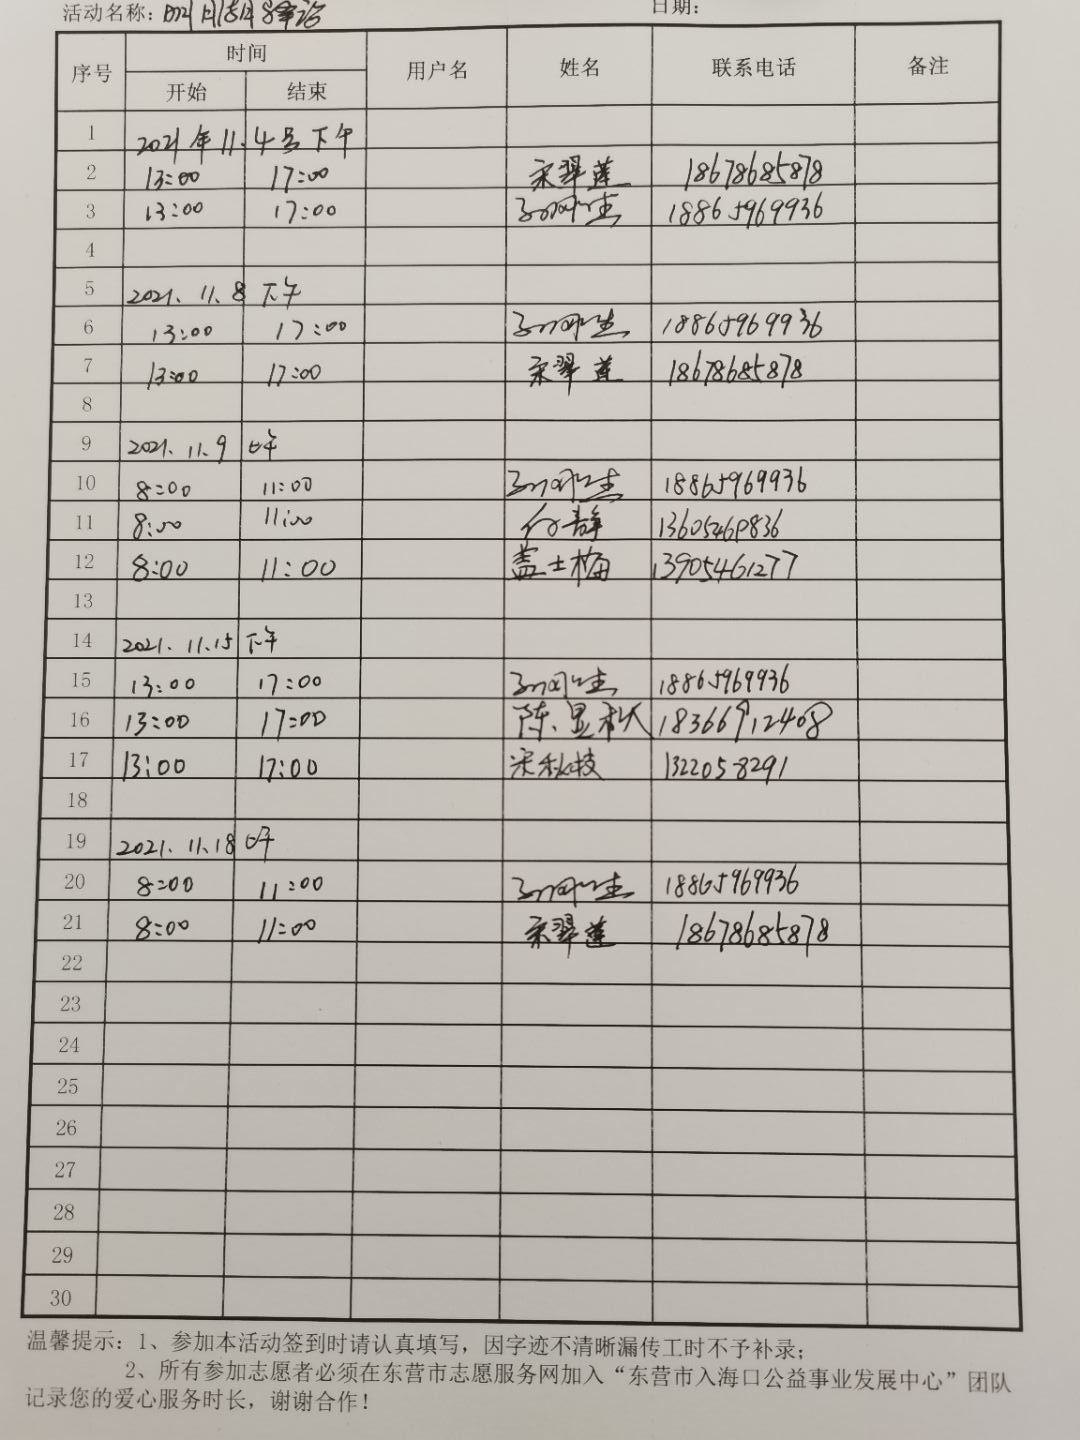 活动名称：
日期：
序号 时间 用户名 姓名 联系电话 备注
开始 结束
1 2021年11.4号下午
2 13:00 17:00 宋翠莲 18678685878
3 13:00 17:00 18865969936
4
5 2021.11.8 下午
6 13:00 17:00 18865969936
7 13:00 17:00 宋翠莲 18678685878
8
9 2021.11.9
10 8:00 11:00 18865969936
11 8:00 11:00 13605469836
12 8:00 11:00 盖士梅 13905461277
13
14 2021.11.15 下午
15 13:00 17:00 18865969936
16 13:00 17:00 陈显秋 18366912408
17 13:00 17:00 宋秋枝 1322058291
18
19 2021.11.18
20 8:00 11:00 18865969936
21 8:00 11:00 宋翠莲 18678685878
22
23
24
25
26
27
28
29
30
温馨提示：1、参加本活动签到时请认真填写，因字迹不清晰漏传工时不予补录；
2、所有参加志愿者必须在东营市志愿服务网加入“东营市入海口公益事业发展中心”团队
记录您的爱心服务时长，谢谢合作！